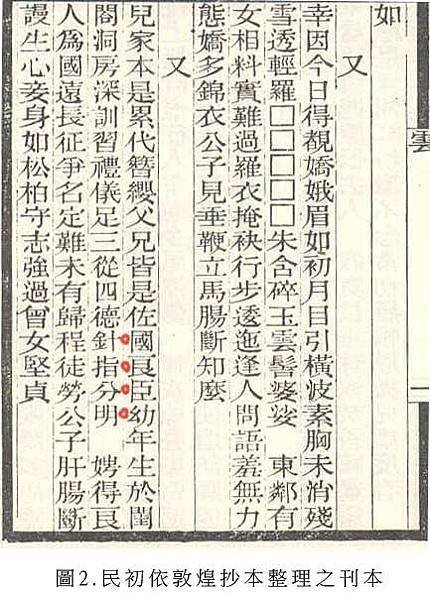 如
雲
又
幸因今日得覩嬌娥眉如初月目引橫波素胸未消殘
雪透輕羅□□□□□朱含碎玉雲髻婆娑　東鄰有
女相料實難過羅衣掩袂行步逶迤逢人問語羞無力
態嬌多錦衣公子見垂鞭立馬腸斷知麼
又
兒家本是累代簪纓父兄皆是佐國良臣幼年生於閨
閤洞房深訓習禮儀足三從四德針指分明　娉得良
人為國遠長征爭名定難未有歸程徒勞公子肝腸斷
謾生心妾身如松柏守志強過曾女堅貞
圖2.民初依敦煌抄本整理之刊本